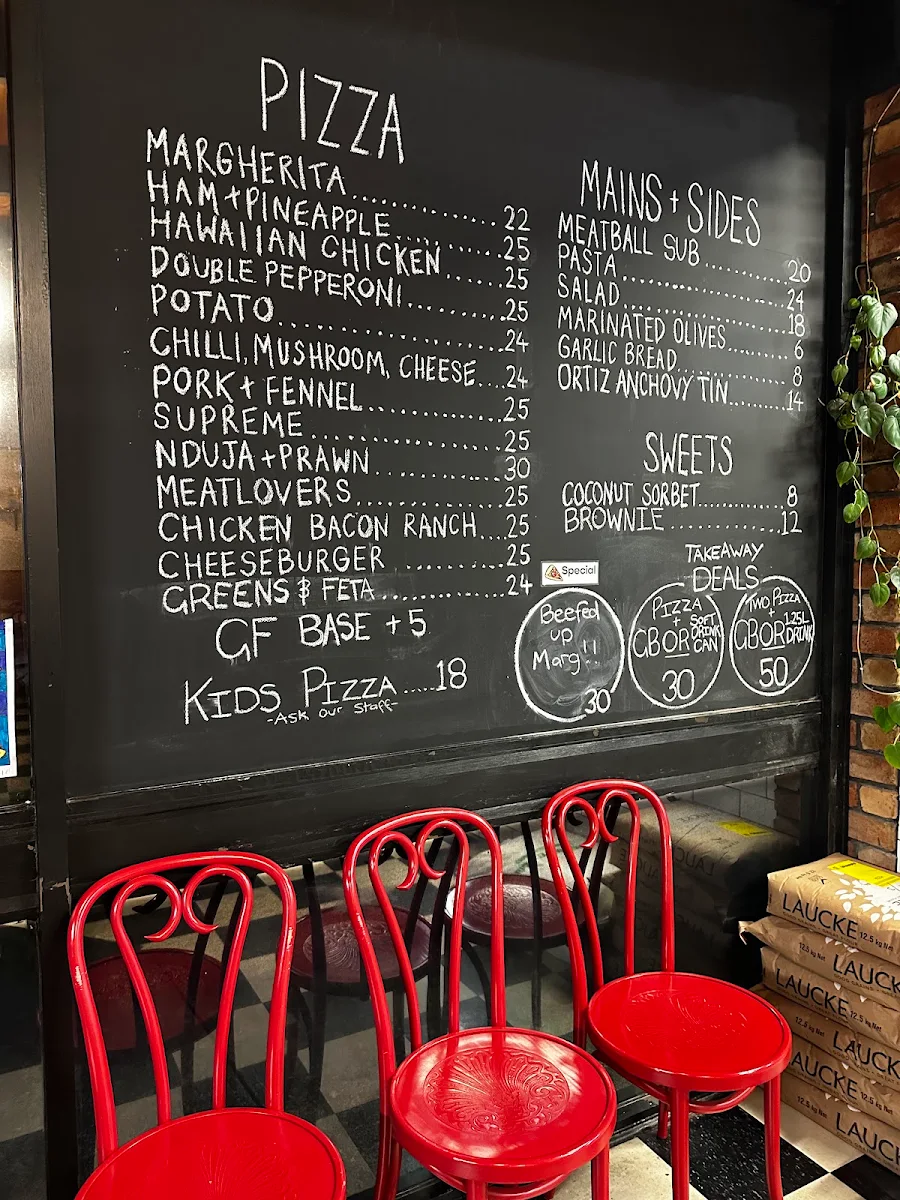 PIZZA
MARGHERITA.................22
HAM+PINEAPPLE.........25
HAWAIIAN CHICKEN......25
DOUBLE PEPPERONI.........25
POTATO.....................24
CHILLI, MUSHROOM, CHEESE....24
PORK + FENNEL.............25
SUPREME..................25
NDUJA+PRAWN............30
MEATLOVERS..............25
CHICKEN BACON RANCH...25
CHEESEBURGER ..........25
GREENS & FETA............24
GF BASE +5
KIDS PIZZA.....18
-Ask our Staff-
MAINS + SIDES
MEATBALL SUB..........20
PASTA.................24
SALAD.................18
MARINATED OLIVES.......6
GARLIC BREAD...........8
ORTIZ ANCHOVY TIN.......14
SWEETS
COCONUT SORBET.........8
BROWNIE............12
TAKEAWAY
DEALS
Special
Beefed
up
Marg!!
30
PIZZA
+
GB OR SOFT DRINK CAN
30
TWO PIZZA
+
GB OR 1.25L DRINK
50
LAUCKE 12.5 kg Net
LAUCK
12.5 kg Net
LAUCKE 12.5 kg Net
LAUCK
12.5 kg Net
LAUCKE 12.5 kg Net
LAUCK
12.5 kg Net